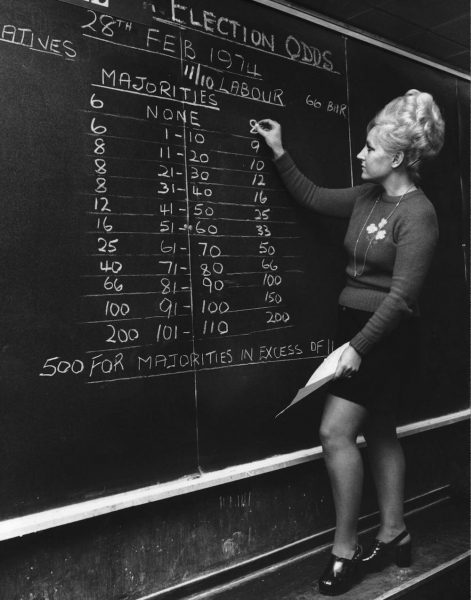 ELECTION ODDS
28TH FEB 1974
ATIVES 11/10 LABOUR 66 BAR
MAJORITIES
6 NONE 8
6 1-10 9
8 11-20 10
8 21-30 12
8 31-40 16
12 41-50 25
16 51-60 33
25 61-70 50
40 71-80 66
66 81-90 100
100 91-100 150
200 101-110 200
500 FOR MAJORITIES IN EXCESS OF 11